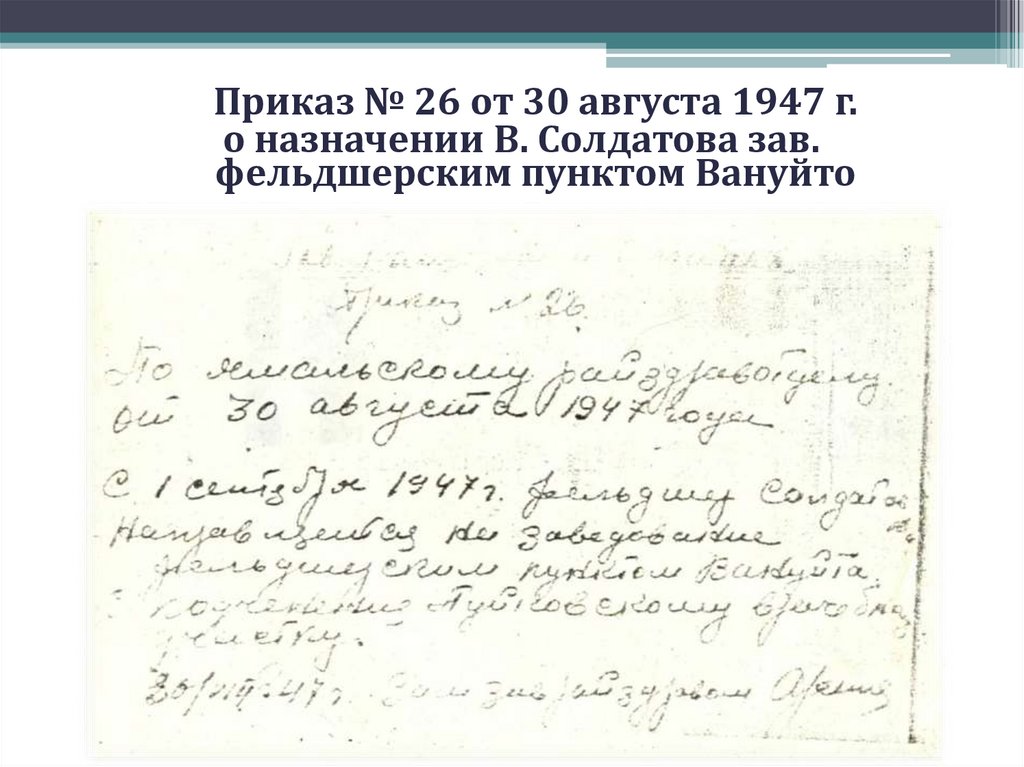 Приказ № 26 от 30 августа 1947 г.
о назначении В. Солдатова зав.
фельдшерским пунктом Вануйто
Приказ № 26.
По Ямальскому райздравотделу
от 30 августа 1947 года
С 1 сентября 1947 г. фельдшер Солдатов
направляется на заведование
фельдшерским пунктом Вануйта.
подчинение Пуйковскому врачебному
участку.
30/VIII-47 г. Зам зав райздравом